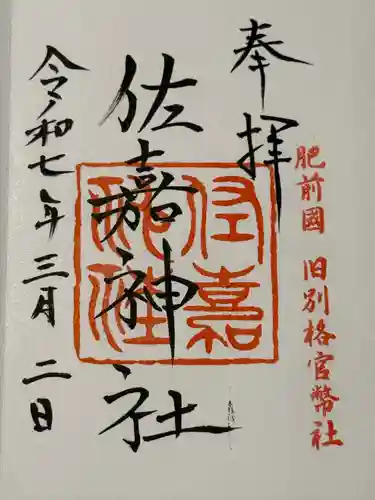 奉拝
肥前國 旧別格官幣社
佐嘉神社
佐嘉神社
令和七年三月二日